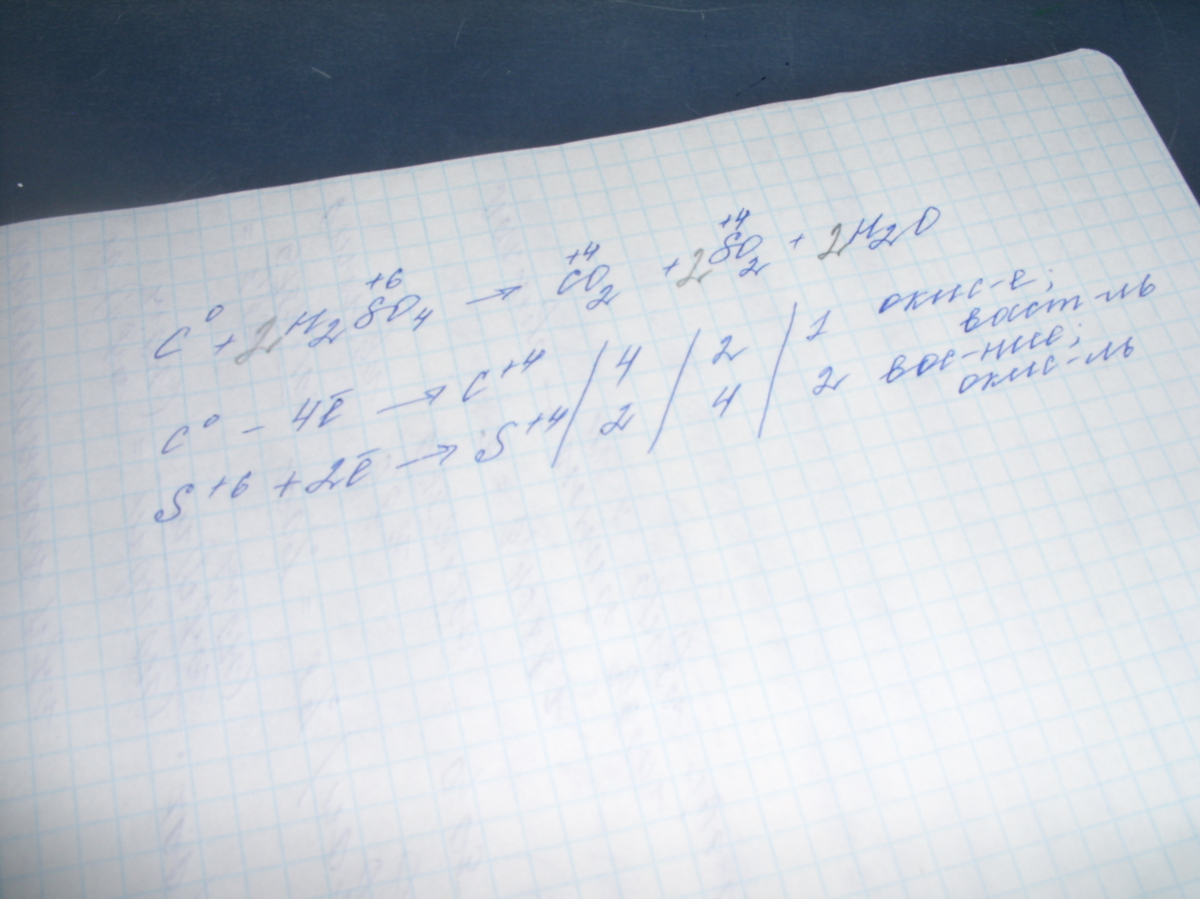 C⁰ + 2H₂S⁺⁶O₄ → C⁺⁴O₂ + 2S⁺⁴O₂ + 2H₂O
C⁰ - 4ē → C⁺⁴ / 4 / 2 / 1 окис-е; вост-ль
S⁺⁶ + 2ē → S⁺⁴ / 2 / 4 / 2 вос-ние; окис-ль